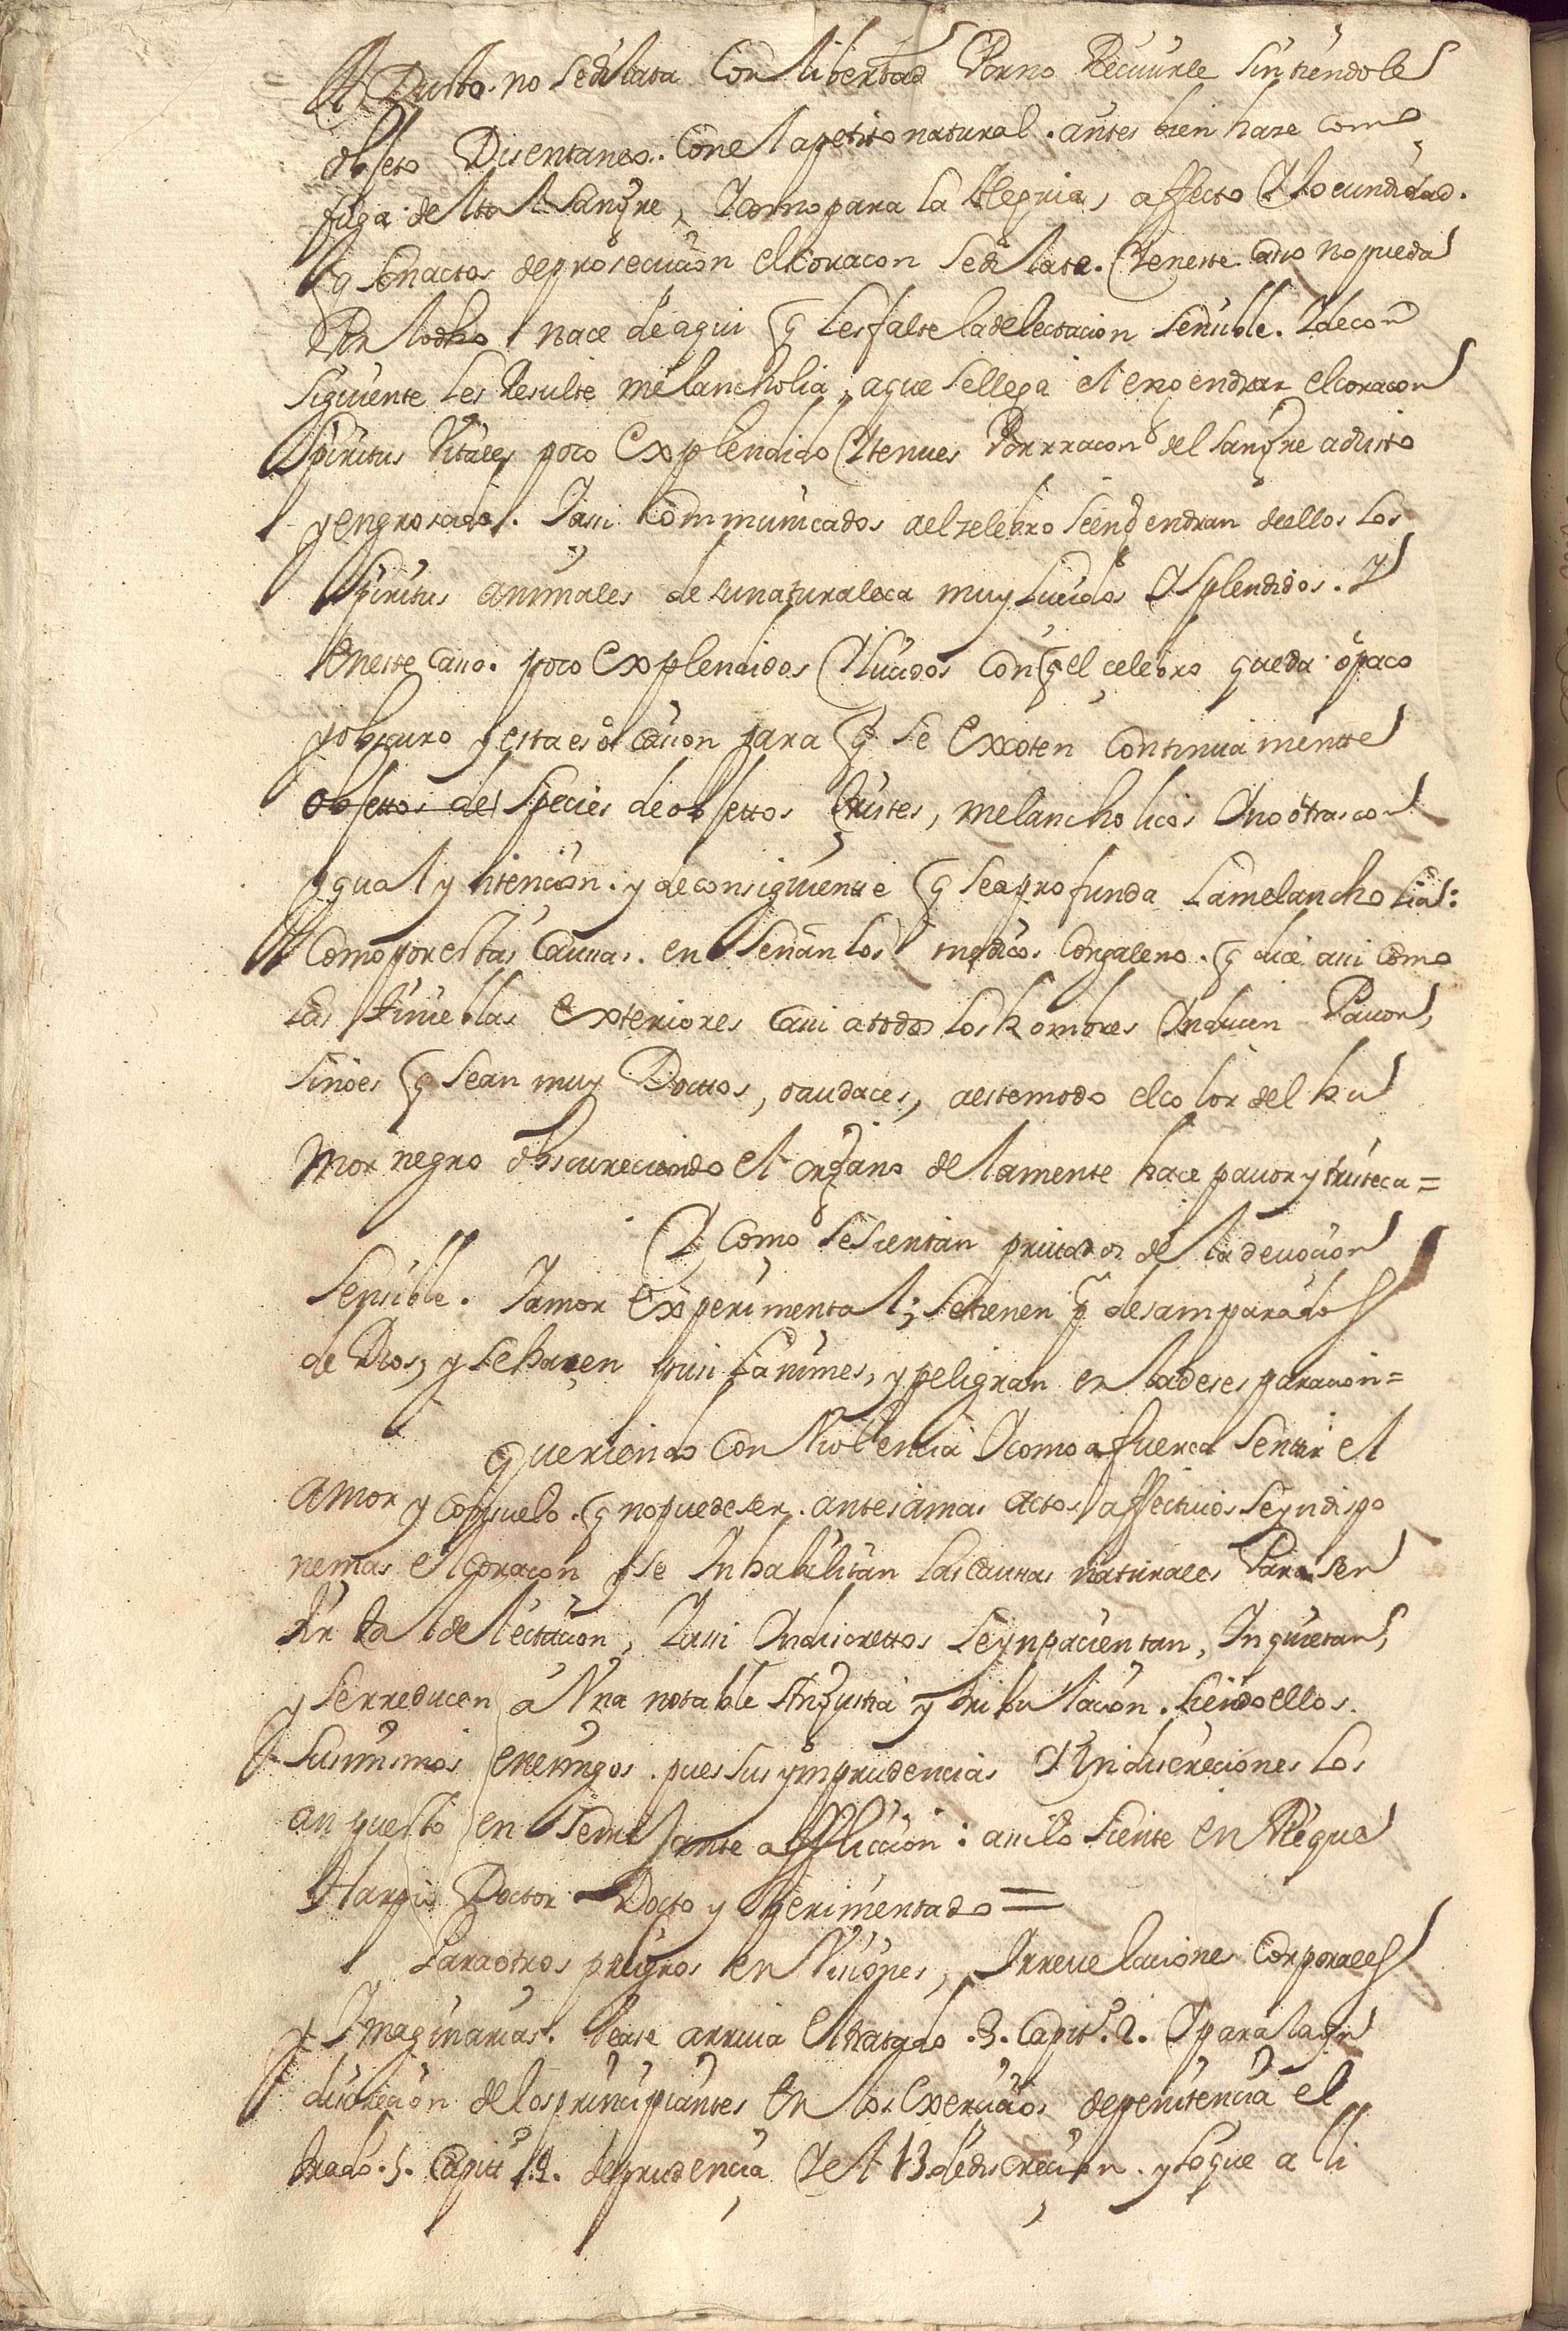 no se dilata Con libertad Por no Recivirle sintiendole
objeto Disentaneo. Con el apetito natural. antes bien hace como
fuga de la Sangre, Y como para la Alegria, affecto Y Jocundidad.
q son actos de prosecucion el coraçon se dilate. Y en este caso no pueda
Por lo dho nace de aqui q les falte la delectacion sensible. Y de con
siguiente les Resulte melancholia, a que se llega el engendrar el coraçon
spiritus Vitales poco Explendido Y tenues Por rraçon del sangre adusto
y engrosado. Y assi Communicados a el zelebro se engendran de ellos los
spiritus animales de su naturaleca muy Lucidos Y Splendidos. Y
en este Casso. poco Explendidos Y lucidos con q el celebro queda opaco
y obscuro y esta es ocasion para q se Exciten Continuamente
objettos de species de objettos tristes, melancholicos Y no otras con
ygual yntencion. y de consiguiente q sea profunda la melancholia:
Como por estas Caussas. enseñan los medicos Con galeno. q dice assi como
las tinieblas exteriores Cassi a todos los hombres Inducen Pavor,
sino es q sean muy Doctos, o audaces, a este modo el color del hu
mor negro obscureciendo el organo de la mente hace pavor y tristeca=
Y Como se sientan privados de la devocion
sensible. Y amor experimental; se tienen p desamparados
de Dios, y se hacen pusilanimes, y peligran en la desesparacion=
queriendo con Violencia Y como a fuerca sentir el
amor y consuelo. q no puede ser. antes a mas actos affectivos se yndispo
ne mas el Coraçon y se Inhabilitan las caussas naturales Para sen
tir la delectacion, Y assi Indiscrettos se ynpacientan, Inquietan,
y se rreducen a Vna notable Angustia y tribulacion. siendo ellos.
sus mismos enemigos. pues sus ymprudencias Y Yndiscreciones los
an puesto en semejante afflicion: assi lo siente enRique
Harpio Doctor Docto y Sperimentado=
Para otros peligros en Visiones, Y rrevelaciones Corporales
y Imaginarias. vease arriva el tratado .3. Capit. 2. Y para la yn
discrecion de los principiantes en los exercicios de penitencia el
tratado .5. Capit 12. de prudencia Y el 13 de discrecion. y lo que alli